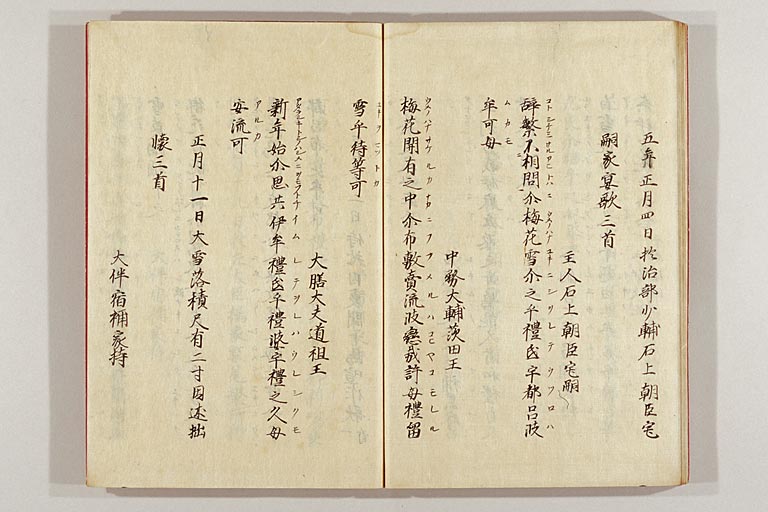 五年正月四日於治部少輔石上朝臣宅
嗣家宴歌三首
主人石上朝臣宅嗣
辞繁不相問尓梅花雪尓之乎礼氐宇都呂波
牟可母
中務大輔茨田王
梅花開有之中尓布敷賣流波戀哉許母礼留
雪乎待等可
大膳大夫道祖王
新年始尓思共伊牟礼氐乎礼婆宇礼之久母
安流可
正月十一日大雪落積尺有二寸因述拙
懐三首
大伴宿祢家持